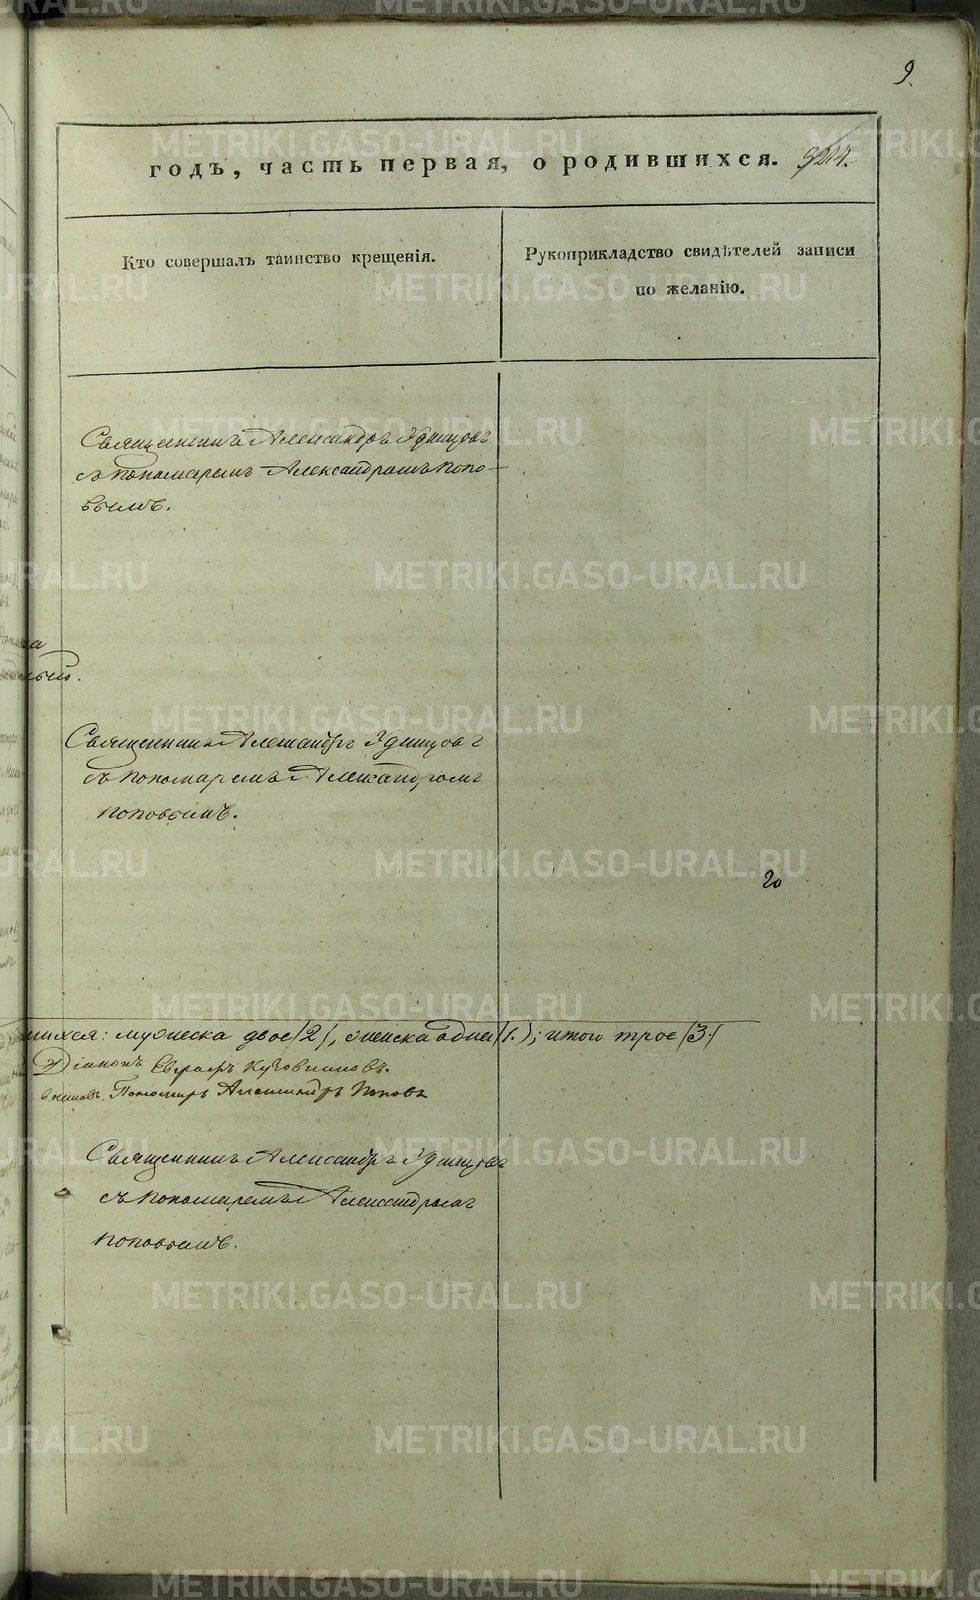 9.
годъ, часть первая, о родившихся.
Кто совершалъ таинство крещенія.
Рукоприкладство свидѣтелей записи
по желанію.
Священникъ Александръ Удинцовъ
съ пономаремъ Александромъ Попо-
вымъ.
Священникъ Александръ Удинцовъ
съ пономаремъ Александромъ
Поповымъ.
20
мужеска двое (2), женска одна (1.); итого трое (3.)
Діаконъ Евграфъ
Пономарь Александръ Поповъ
Священникъ Александръ Удинцовъ
съ пономаремъ Александромъ
Поповымъ.
METRIKI.GASO-URAL.RU